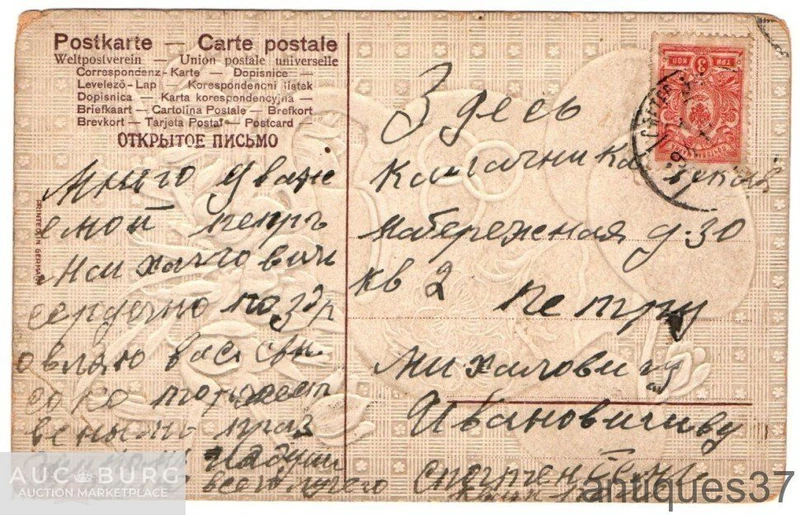 Postkarte — Carte postale
Weltpostverein — Union postale universelle
Correspondenz-Karte — Dopisnice —
Levelező-Lap — Korespondencni listek
Dopisnica — Karta korespondencyjna —
Briefkaart — Cartolina Postale — Brefkort
Brevkort — Tarjeta Postal — Postcard
ОТКРЫТОЕ ПИСЬМО
PRINTED IN GERMANY
Много уваж
емой петръ
Михаиловичъ
сердечно поздр
овляю вас с
торжест
веным праз
всего лучего
Здесь
набережная д. 30
кв 2 петру
михаловичу
Ивановичиву
ТРИ 3 КОП
AUC BURG
AUCTION MARKETPLACE
antiques37